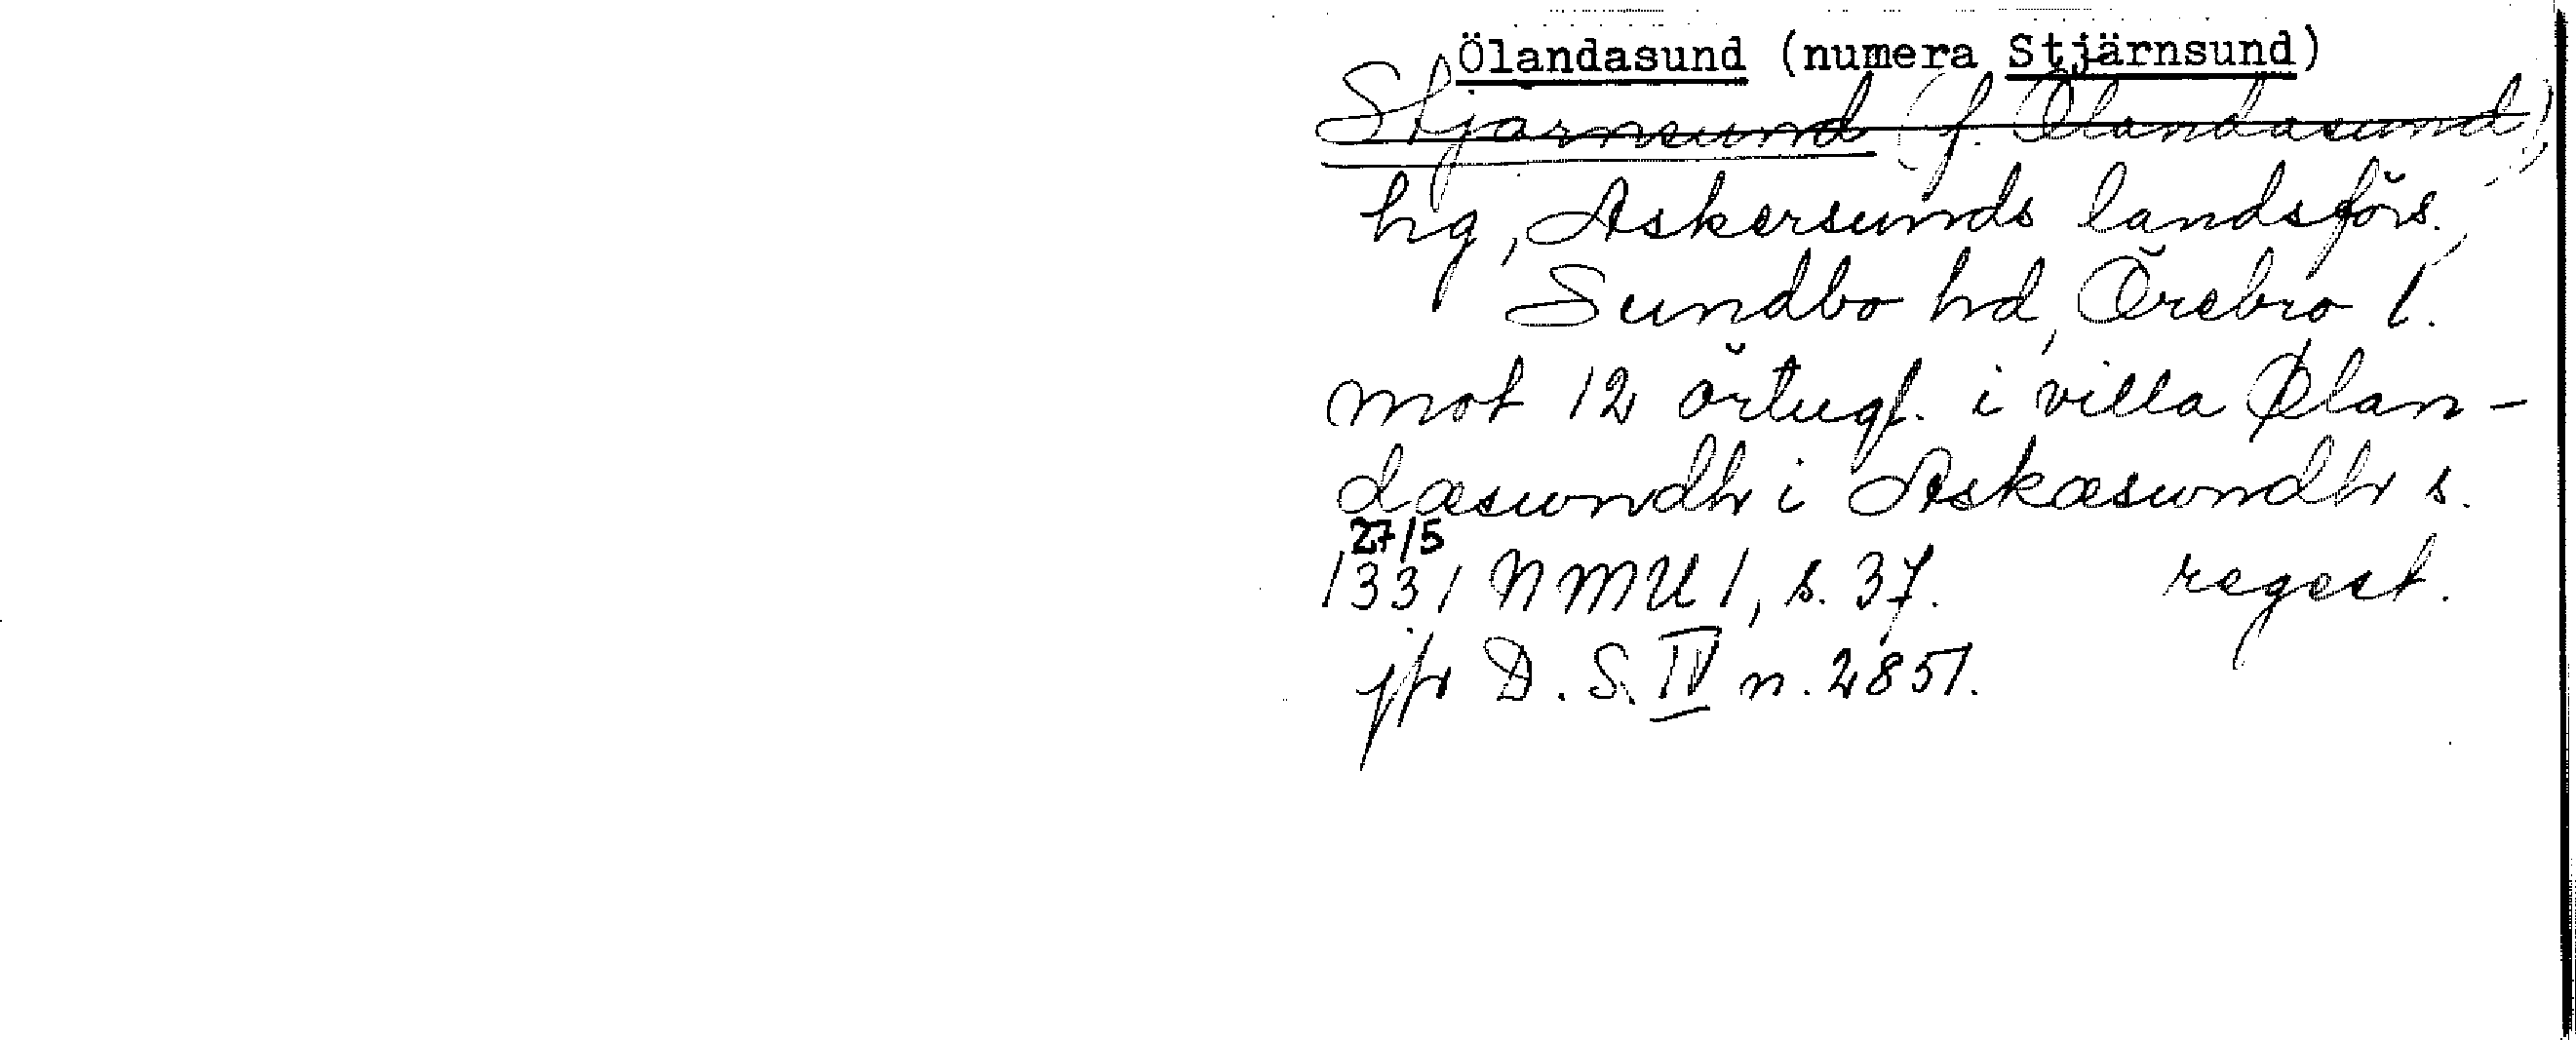 Ölandasund (numera Stjärnsund)
Stjärnsund (f. Ölandasund),
hg, Askersunds landsförs.,
Sundbo hd, Örebro l.
mot 12 örtugl. i villa Ølan-
dæswndh i Askæswndh s.
27/5
1331 NMU 1, s. 37. regest.
jfr D. S. IV n. 2851.